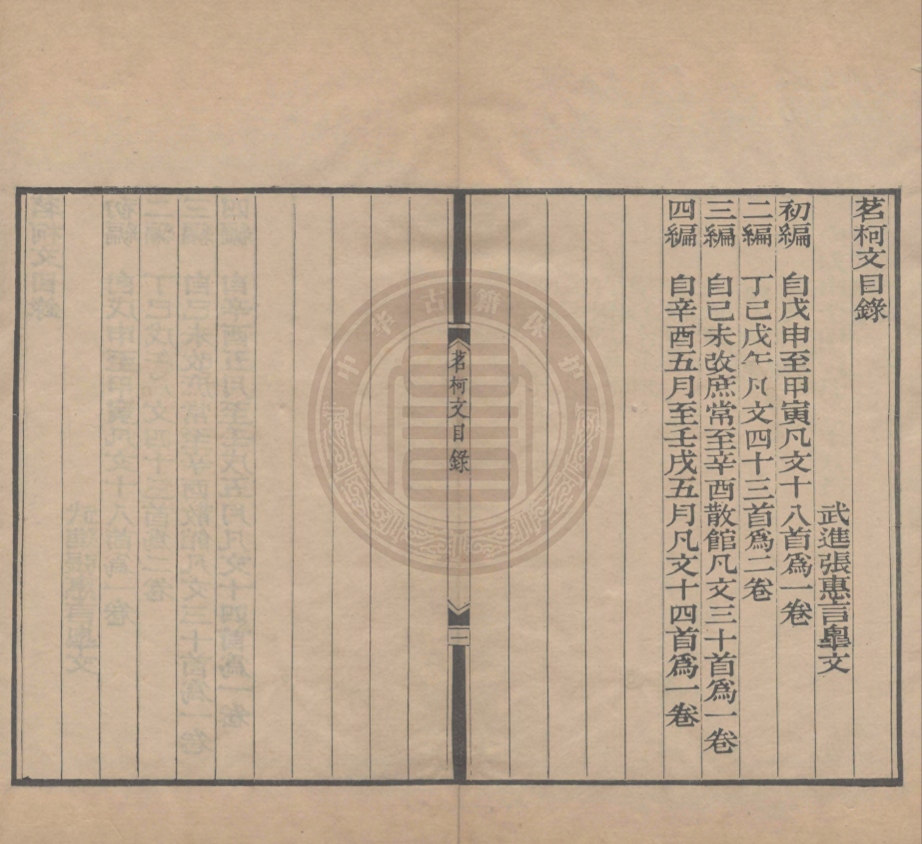 茗柯文目錄
武進張惠言臯文
初編　自戊申至甲寅凡文十八首爲一卷
二編　丁巳戊午凡文四十三首爲二卷
三編　自己未改庶常至辛酉散館凡文三十首爲一卷
四編　自辛酉五月至壬戌五月凡文十四首爲一卷
茗柯文目錄
一
中华古籍保护